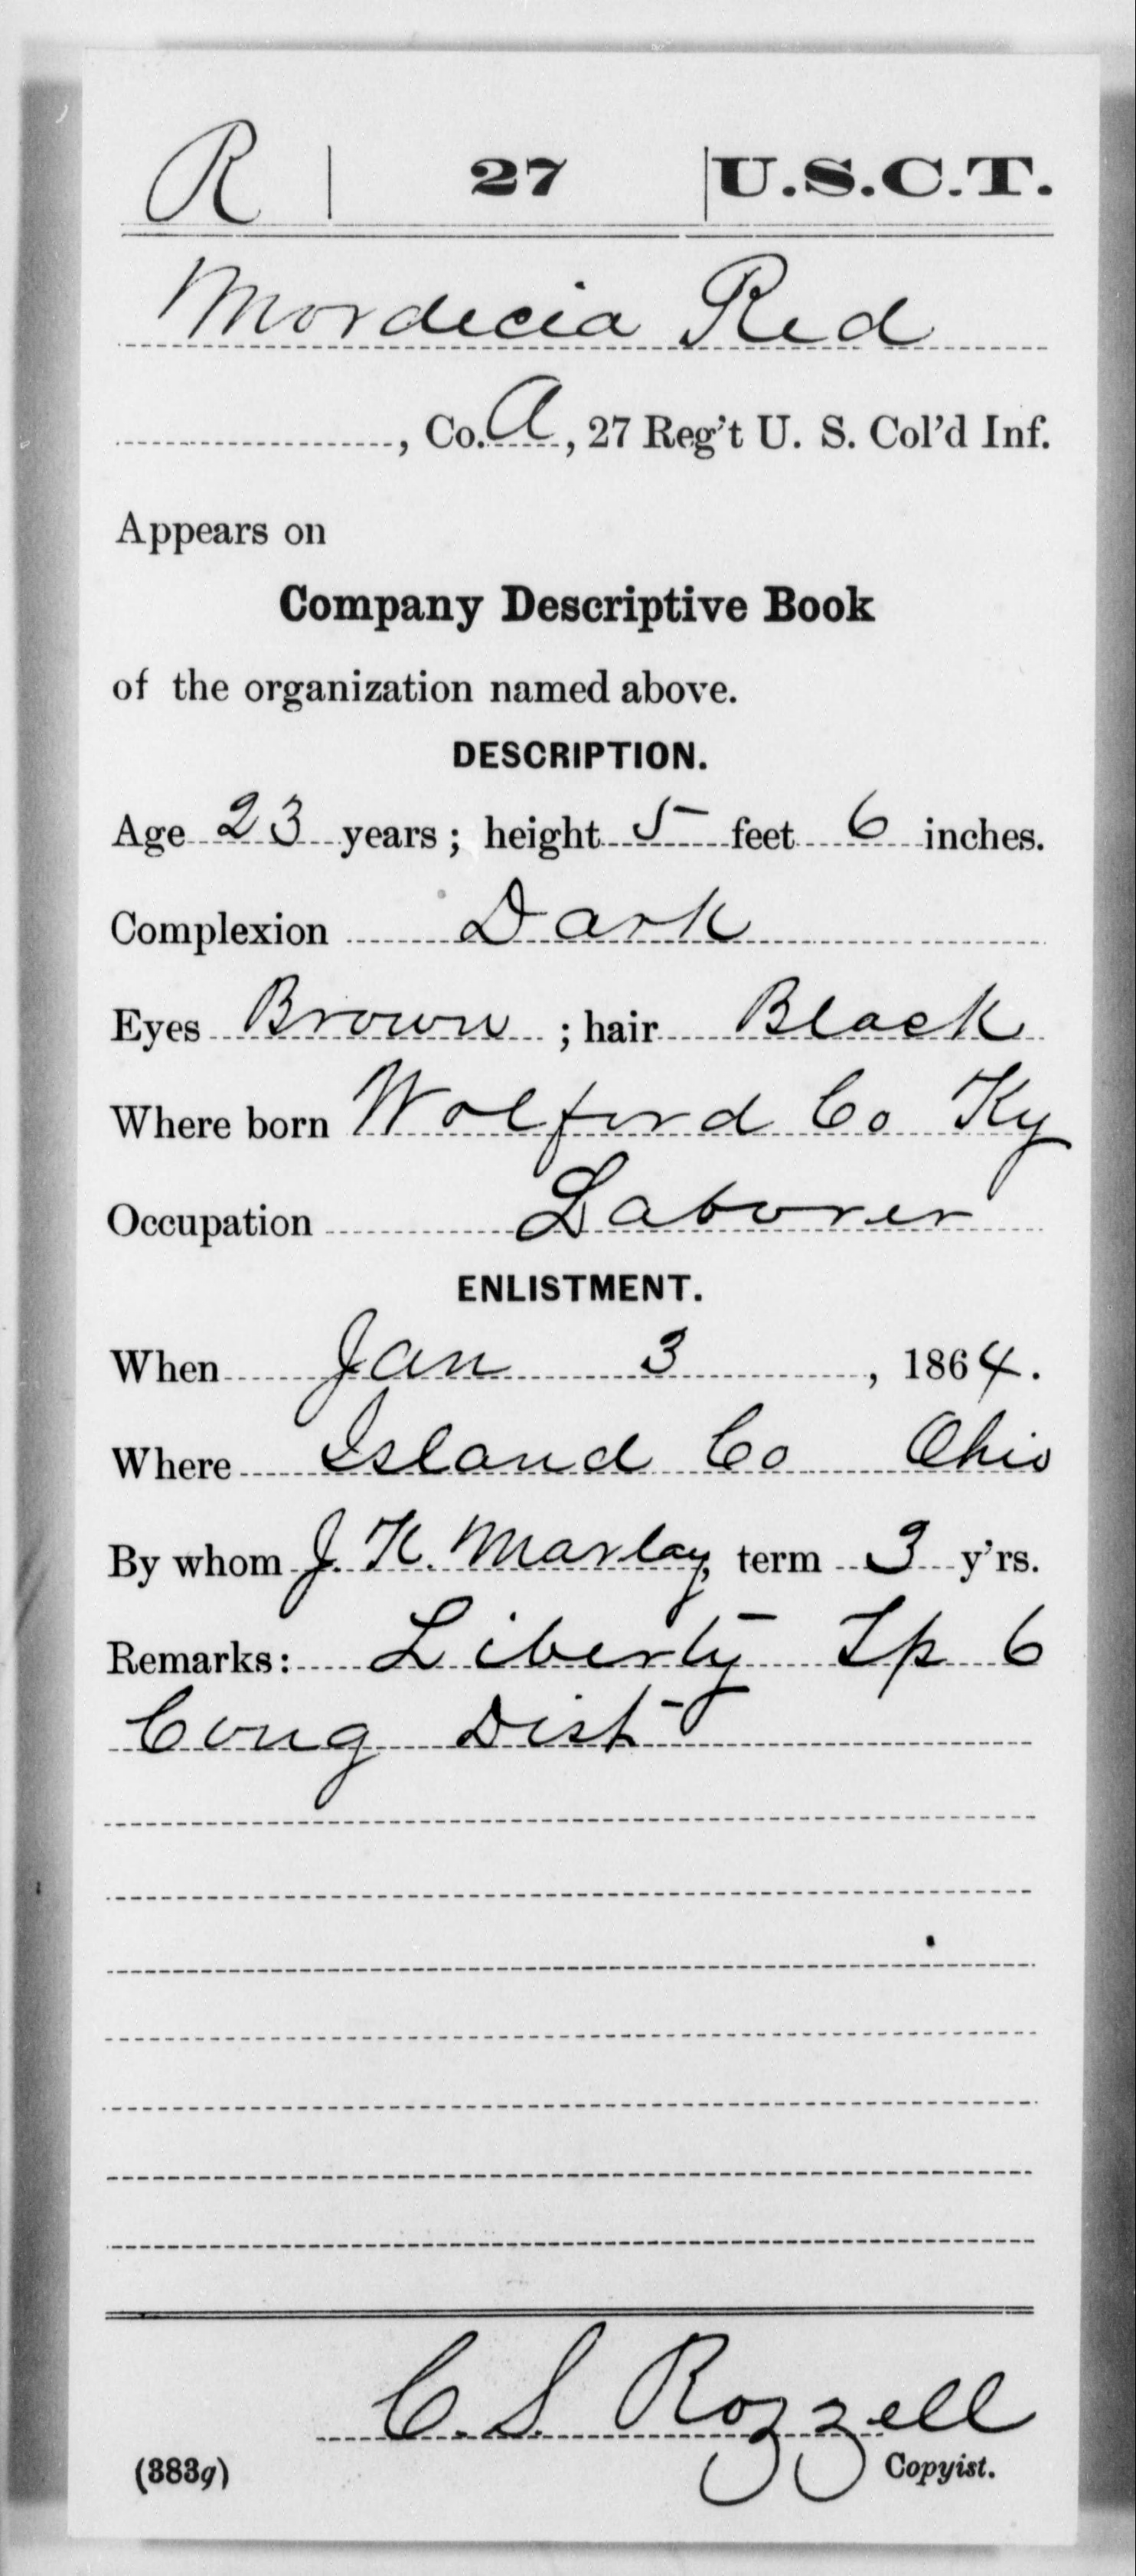 R | 27 | U.S.C.T.
Mordecia Red
, Co. A, 27 Reg't U. S. Col'd Inf.
Appears on
Company Descriptive Book
of the organization named above.
DESCRIPTION.
Age 23 years; height 5 feet 6 inches.
Complexion Dark
Eyes Brown; hair Black
Where born Wolford Co Ky
Occupation Laborer
ENLISTMENT.
When Jan 3, 1864.
Where Island Co Ohio
By whom J. K. Marlay, term 3 y'rs.
Remarks: Liberty Tp 6
Cong Dist
C. S. Rozzell
(383g) Copyist.